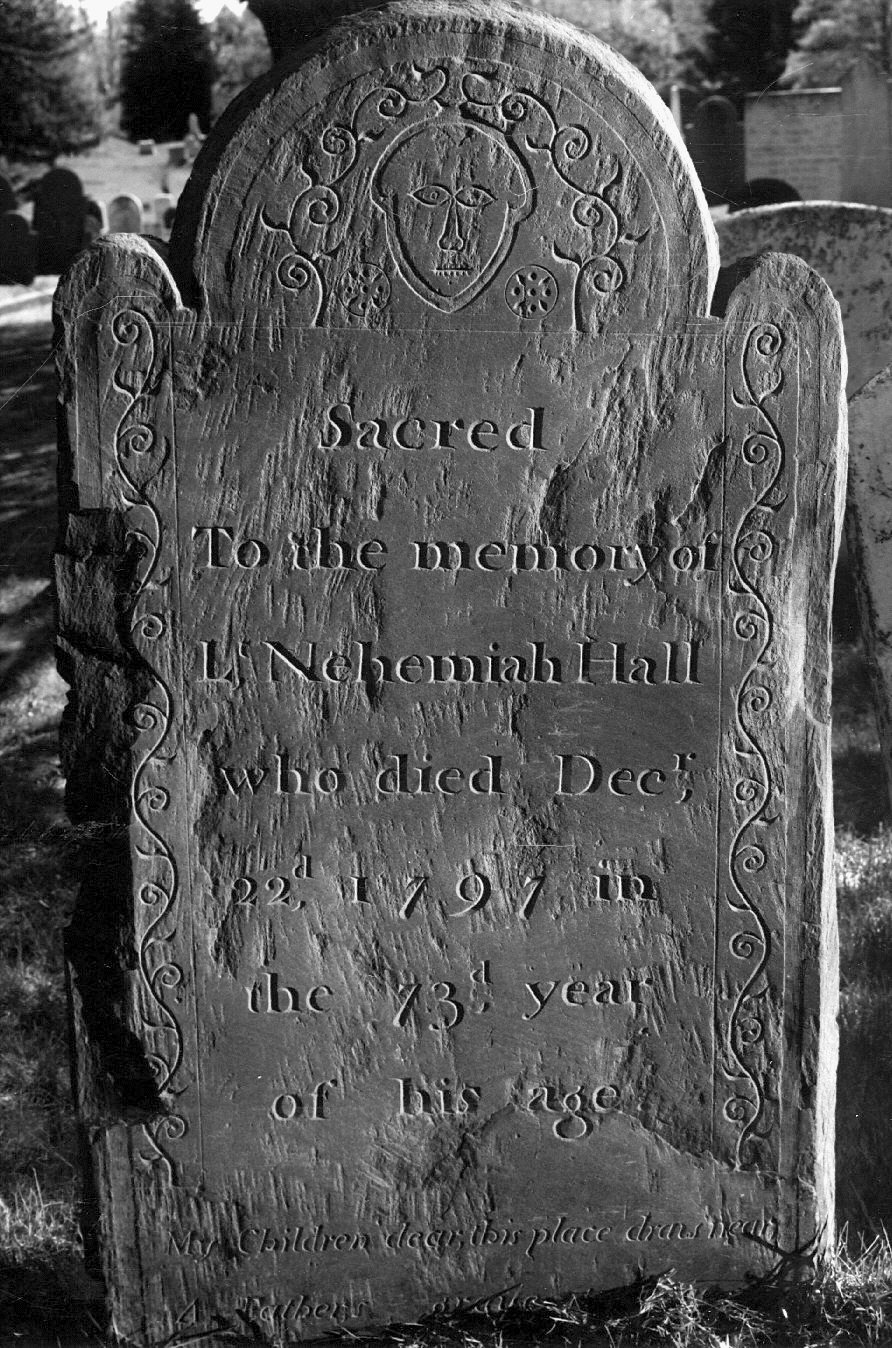 Sacred
To the memory of
Lt. Nehemiah Hall
who died Decr,
22d, 1797 in
the 73d, year
of his age
My Children dear, this place draws near
A Fathers grave